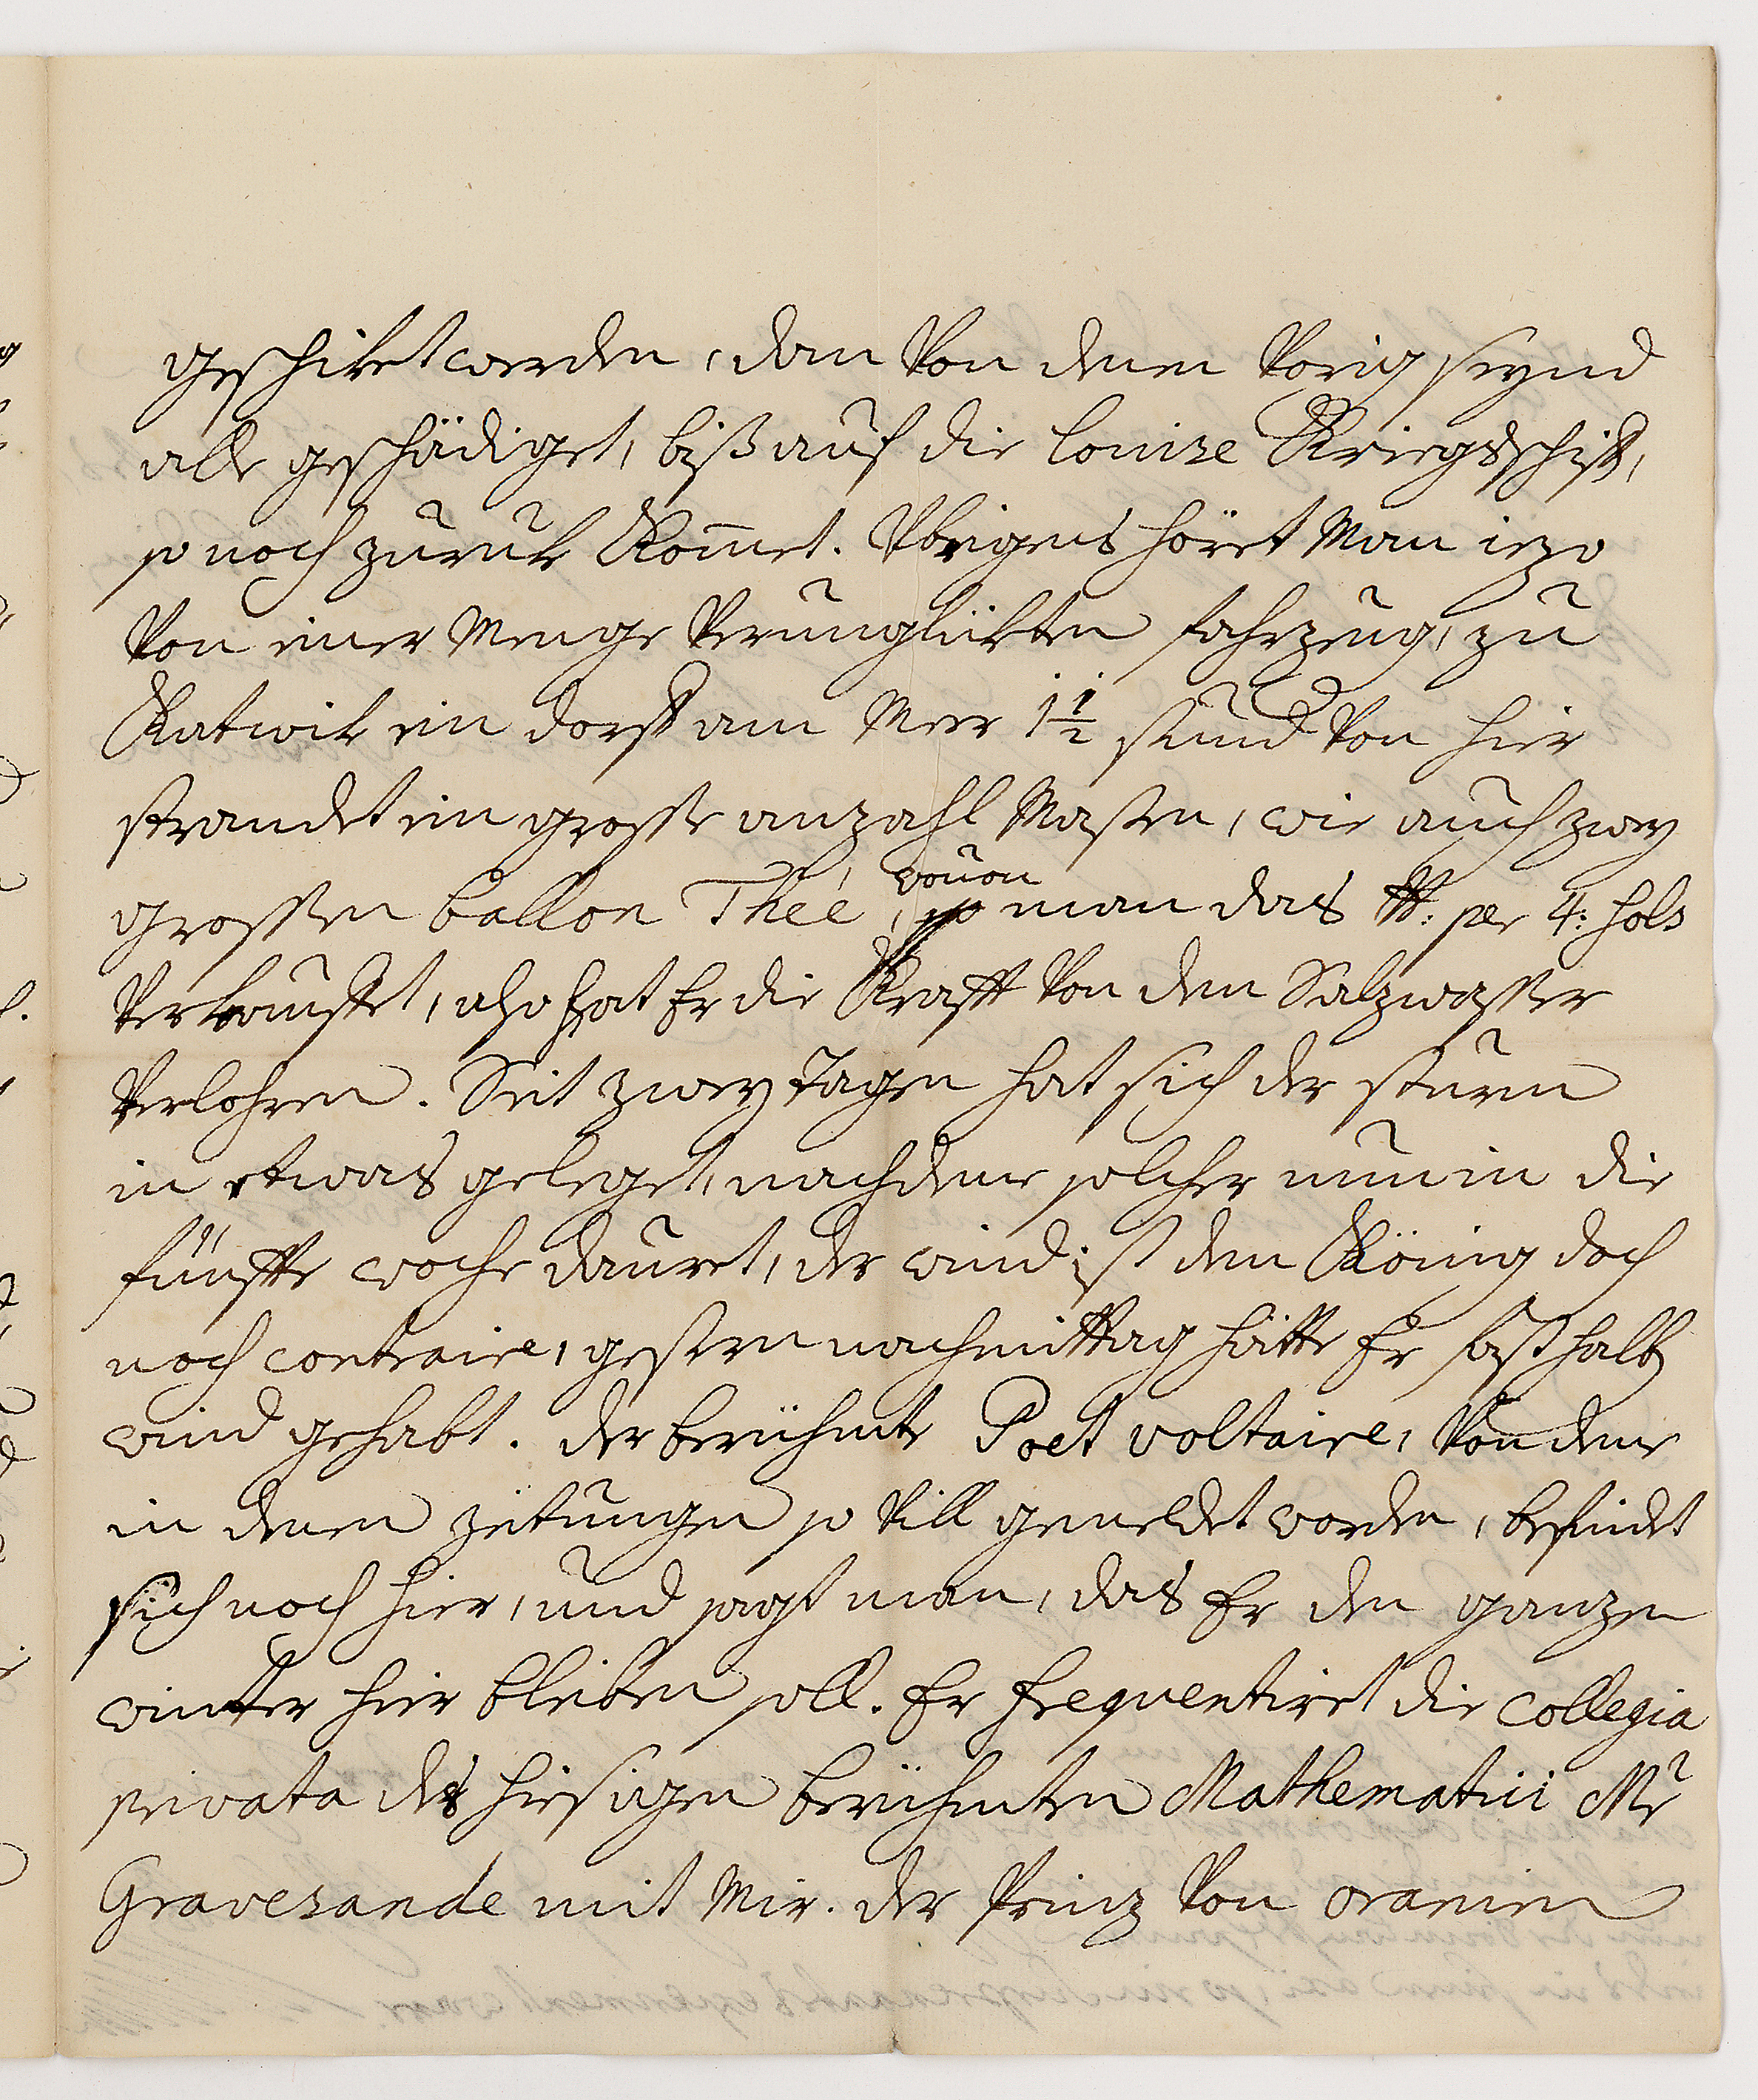 geschiket werden, dan von denen vorig seynd
alle geschädiget, biß auf die Louize Kriegsschiff,
so noch zuruk Kom̄et. Vbrigens höret Man iezo
von einer Menge verunglükten fahrzeug, zu
Katwik ein dorff am Meer 1 1/2 stund von hier
strandet ein grosse anzahl Masten, wie auch zwey
grossen ballon Thée, wouon man das ℔: per 4: hols
verkauffet, also hat Er die Krafft von dem Salzwasser
verlohren. Seit zwey tagen hat sich der sturm
in etwas geleget, nachdeme solcher nun in die
fünffte woche dauret, der wind ist dem König doch
noch contraire, gestern nachmittag hätte Er fast halb
wind gehabt. der berühmte Poet voltaire, von deme
in denen zeitungen so vill gemeldet worden, befindet
sich noch hier, und sagt man, das Er den ganzen
winter hier bleiben soll. Er frequentiret die Collegia
privata des hiesigen berühmten Mathematici Mr
Gravezande mit Mir. der Prinz von oranien